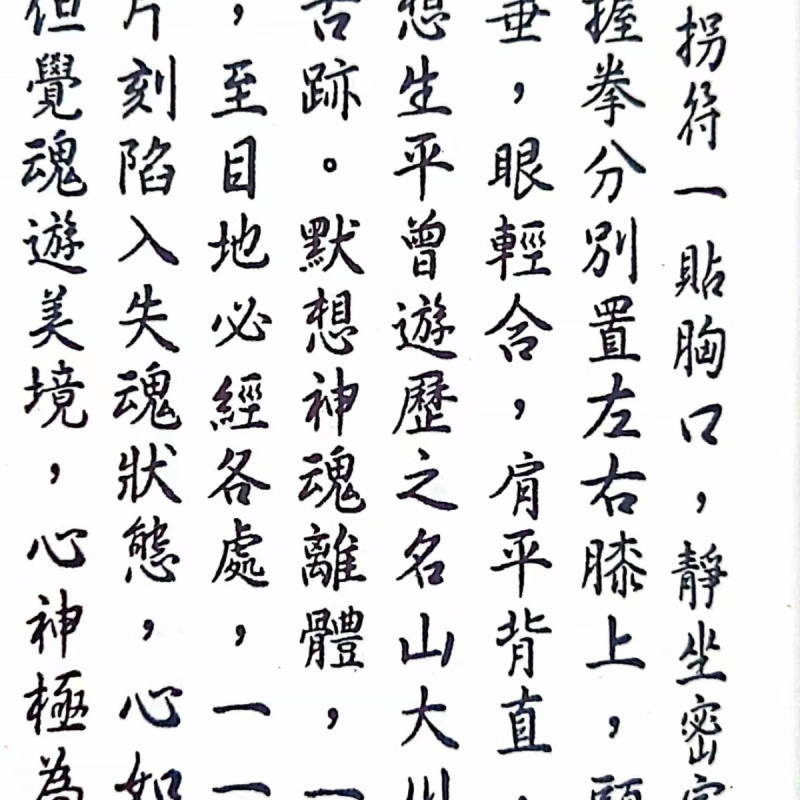 拐符一貼胸口，靜坐密室
握拳分別置左右膝上，頭
垂，眼輕含，肩平背直，
想生平曾遊歷之名山大川
古跡。默想神魂離體，一
，至目地必經各處，一一
片刻陷入失魂狀態，心如
但覺魂遊美境，心神極為